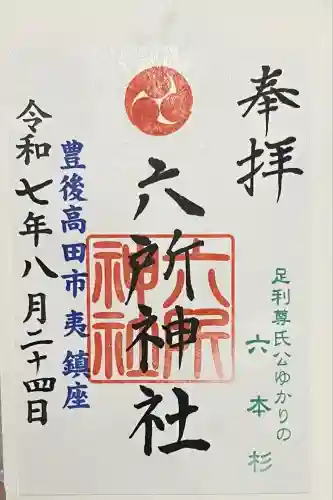 奉拝
足利尊氏公ゆかりの
六本杉
六所神社
六所神社
豊後高田市 夷 鎮座
令和七年八月二十四日